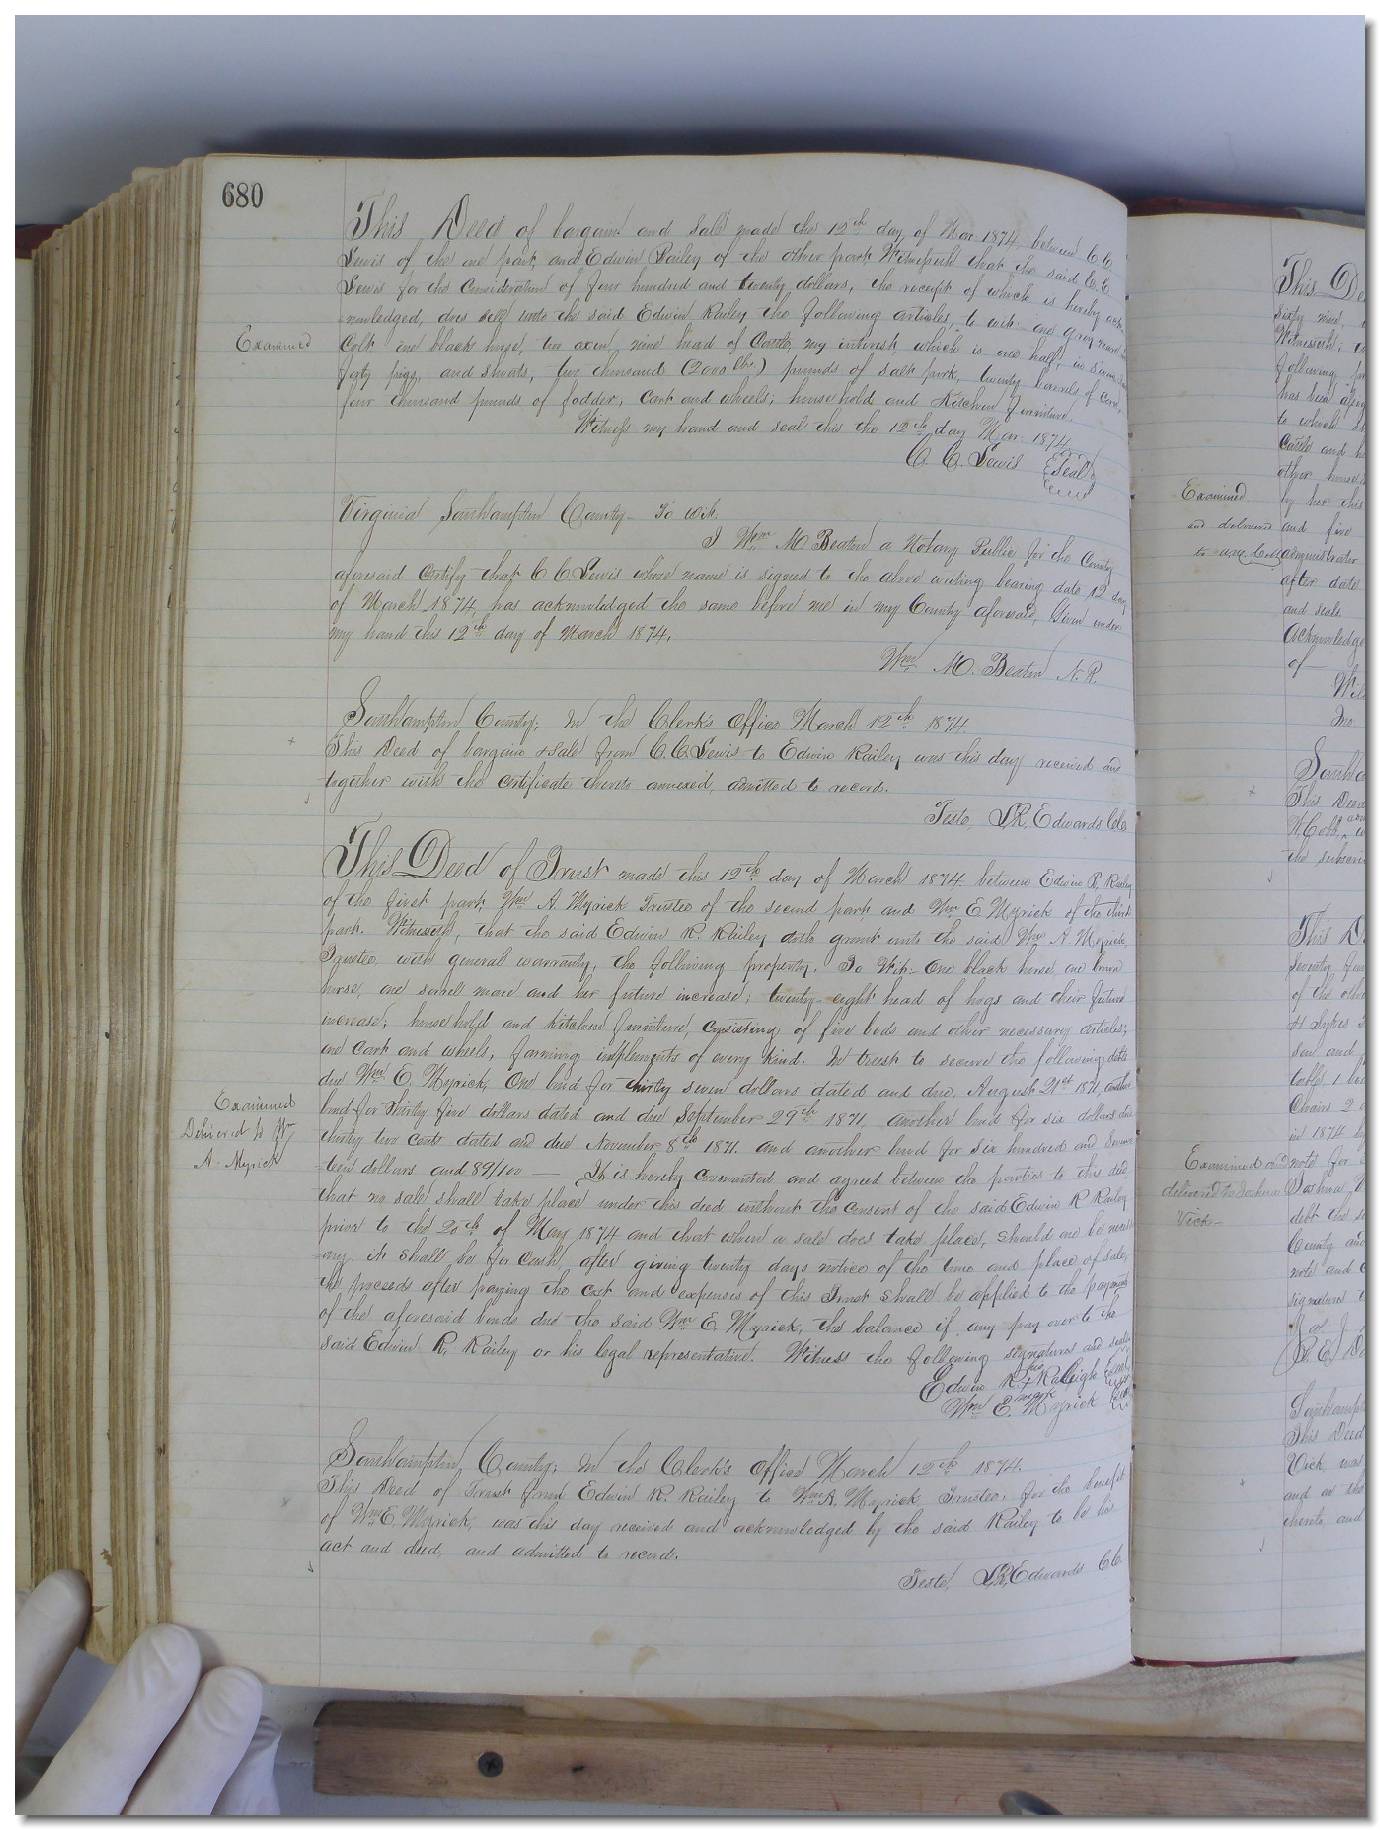 680
This Deed of bargain and Sale made the 12th day of Mar 1874 between C. C.
Lewis of the one part, and Edwin Railey of the other part, Witnesseth that the said C. C.
Lewis for the Consideration of four hundred and twenty dollars, the receipt of which is hereby ack-
nowledged, does sell unto the said Edwin Railey the following articles, to wit: one grey mare
Examined
Colt one black horse, two oxen, nine head of Cattle, my interest which is one half, in
forty pigs, and shoats, two thousand (2000 lbs.) pounds of salt pork, twenty barrels of Corn,
four thousand pounds of fodder, Cart and wheels; household and Kitchen furniture.
Witness my hand and seal this the 12th day Mar. 1874
C. C. Lewis {Seal}
Virginia Southampton County– To Wit.
I Wm M. Beaton a Notary Public for the County
aforesaid Certify that C C Lewis whose name is signed to the above writing bearing date 12 day
of March 1874, has acknowledged the same before me in my County aforesaid, Given under
my hand this 12th day of March 1874.
Wm M. Beaton N. P.
Southampton County; In the Clerk's Office March 12th 1874
This Deed of bargain & Sale from C. C. Lewis to Edwin Railey was this day received and
together with the Certificate thereto annexed, admitted to record.
Teste, L. R. Edwards Clk
This Deed of Trust made this 12th day of March 1874 between Edwin R. Railey
of the first part, Wm A. Myrick Trustee of the second part and Wm E Myrick of the third
part. Witnesseth, that the said Edwin R. Railey doth grant unto the said Wm A Myrick,
Trustee, with general warranty, the following property. To Wit: One black horse, one brown
horse, one sorrell mare and her future increase; twenty-eight head of hogs and their future
increase; household and Kitchen furniture, Consisting of five beds and other necessary articles;
one Cart and wheels, farming implements of every Kind. In trust to secure the following debts
due Wm E. Myrick, One bond for thirty seven dollars dated and due, August 21st 1871, another
Examined
Delivered to Wm
A. Myrick
bond for Thirty five dollars dated and due September 29th 1871, another bond for six dollars and
thirty two Cents dated and due November 8th 1871. and another bond for six hundred and Seven-
teen dollars and 89/100 — It is hereby Covenanted and agreed between the parties to this deed
that no sale shall take place under this deed without the Consent of the said Edwin R Railey
prior to the 20th of May 1874 and that when a sale does take place, should one be necess-
ary it shall be for Cash, after giving twenty days notice of the time and place of sale,
the proceeds after paying the Cost and expenses of this Trust shall be applied to the payment
of the aforesaid bonds due the said Wm E. Myrick, the balance if any pay over to the
said Edwin R. Railey or his legal representative. Witness the following signatures and seals
Edwin R. his + mark Raleigh {Seal}
Wm E. Myrick {Seal}
Southampton County; In the Clerk's Office March 12th 1874.
This Deed of Trust from Edwin R. Railey to Wm A. Myrick Trustee, for the benefit
of Wm E. Myrick, was this day received and acknowledged by the said Railey to be his
act and deed, and admitted to record.
Teste, L. R. Edwards C C.
This De
sixty nine,
Witnesseth,
following
has been
to which
Cattle and
other
Examined
and delivered
to
by her this
and five
administrator
after date
and seals
Acknowledge
of
Jno
Southa
This Deed
N. Cobb,
the subscri
This D
Seventy four
of the other
H Sykes
son and
table, 1
Chairs 2
in 1874
Examined and
delivered to Joshua
Vick–
note for
Joshua V
debt the
County and
note and
signatures
R. E. J.
Southampt
This Deed
Vick, was
and
thereto, and